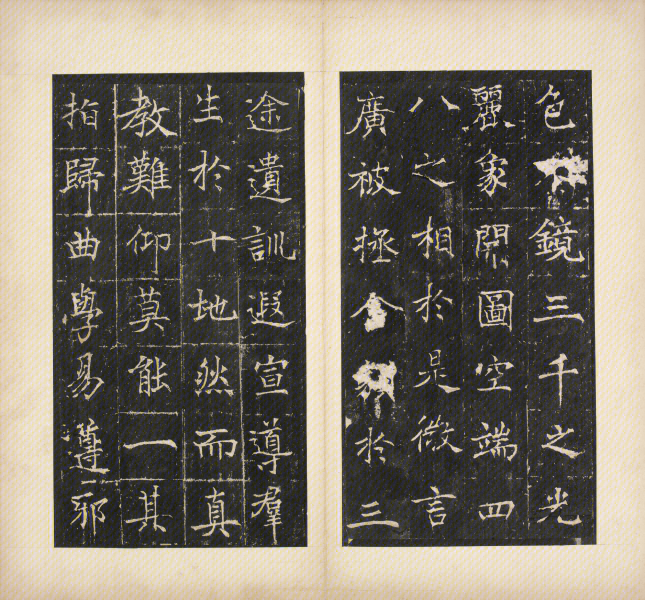 色鏡三千之光
麗象開圖空端四
八之相於是微言
廣被拯含於三
途遺訓遐宣導羣
生於十地然而真
教難仰莫能一其
指歸曲學易遵邪